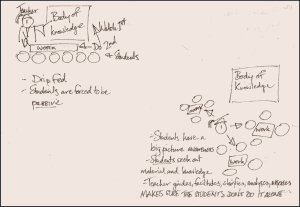 Teacher
Body of
Knowledge
work
Do 2nd
Students
- Drip Fed
- Students are forced to be
passive
Body of
Knowledge
work
work
work
- Students have a
big picture awareness
- Students seek out
material and knowledge
- Teacher guides, facilitates, clarifies, analyses, assesses
MAKES SURE THE STUDENTS DON'T DO IT ALONE